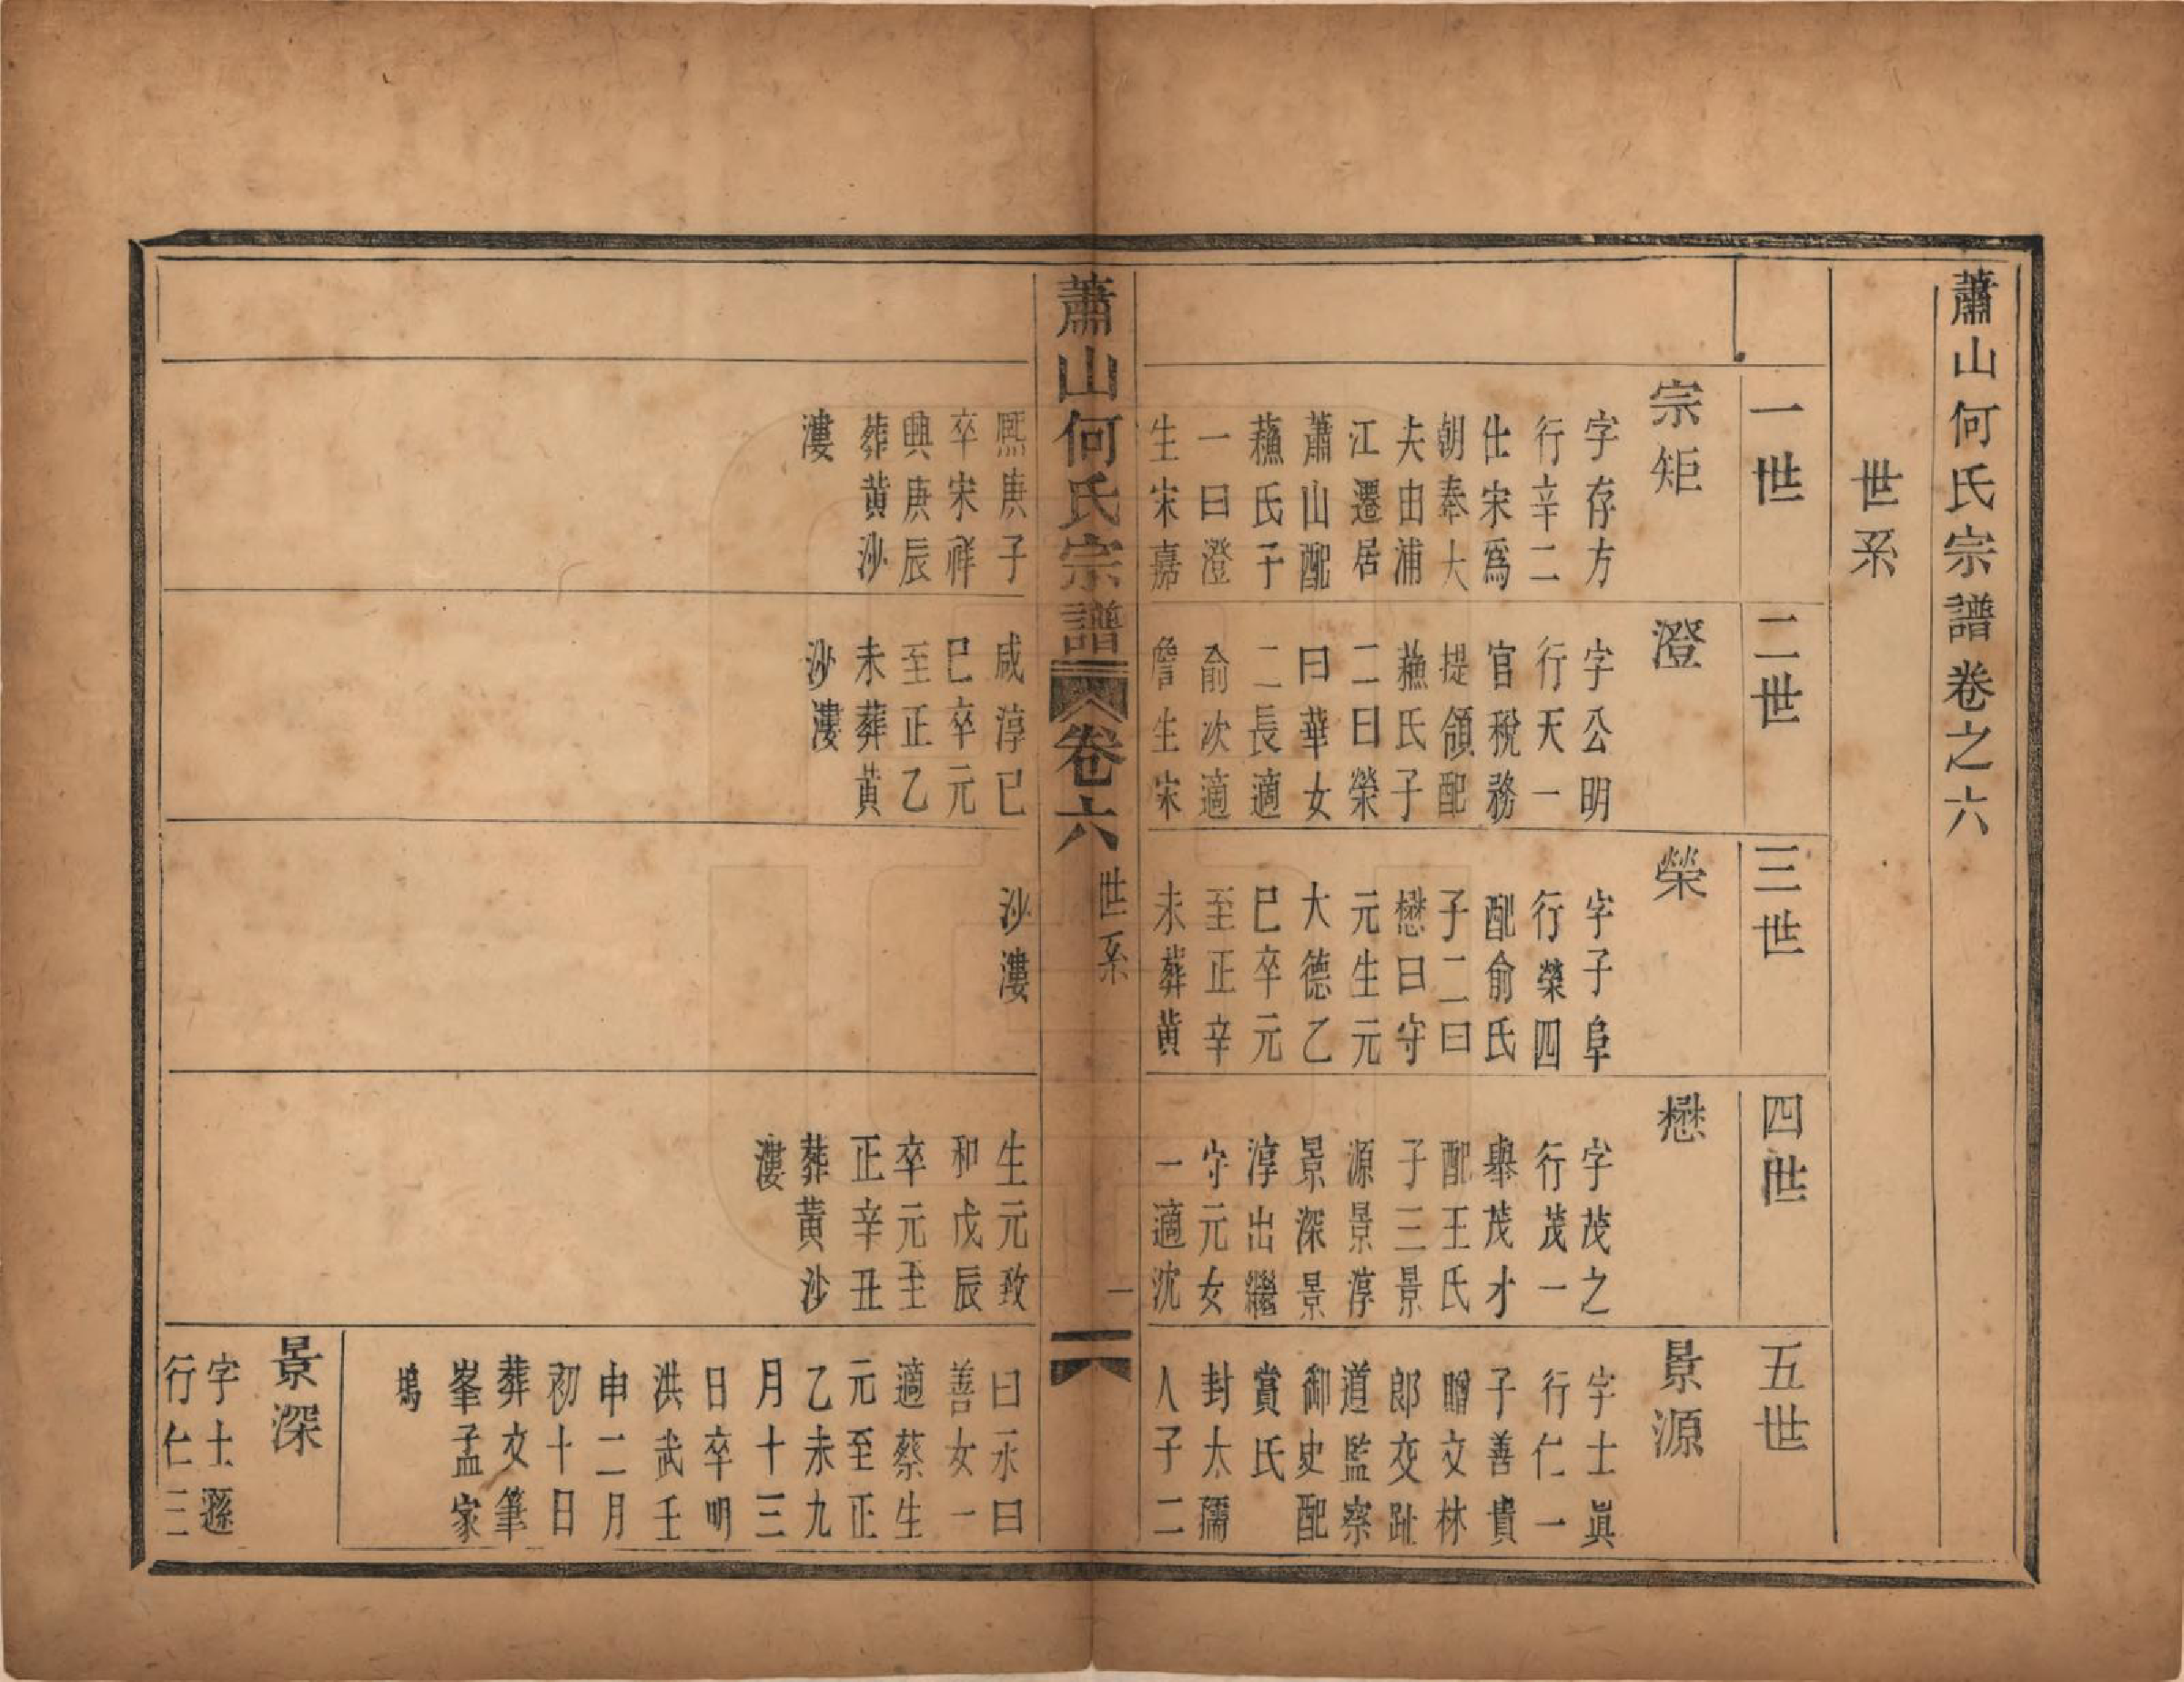 蕭山何氏宗譜卷之六
世系
一世
宗矩
字存方
行辛二
仕宋爲
朝奉大
夫由浦
江遷居
蕭山配
蘓氏子
一曰澄
生宋嘉
熈庚子
卒宋祥
興庚辰
葬黄沙
漊
二世
澄
字公明
行天一
官稅務
提領配
蘓氏子
二曰榮
曰華女
二長適
俞次適
詹生宋
咸淳己
巳卒元
至正乙
未葬黄
沙漊
三世
榮
字子阜
行榮四
配俞氏
子二曰
懋曰守
元生元
大德乙
巳卒元
至正辛
未葬黄
沙漊
四世
懋
字茂之
行茂一
舉茂才
配王氏
子三景
源景淳
景深景
淳出繼
守元女
一適沈
生元致
和戊辰
卒元至
正辛丑
葬黃沙
漊
五世
景源
字士眞
行仁一
子善貴
贈文林
郎交趾
道監察
御史配
賞氏
封太孺
人子二
曰永曰
善女一
適蔡生
元至正
乙未九
月十三
日卒明
洪武壬
申二月
初十日
葬文筆
峯孟家
塢
景深
字士遜
行仁三
蕭山何氏宗譜
卷六
世系
一